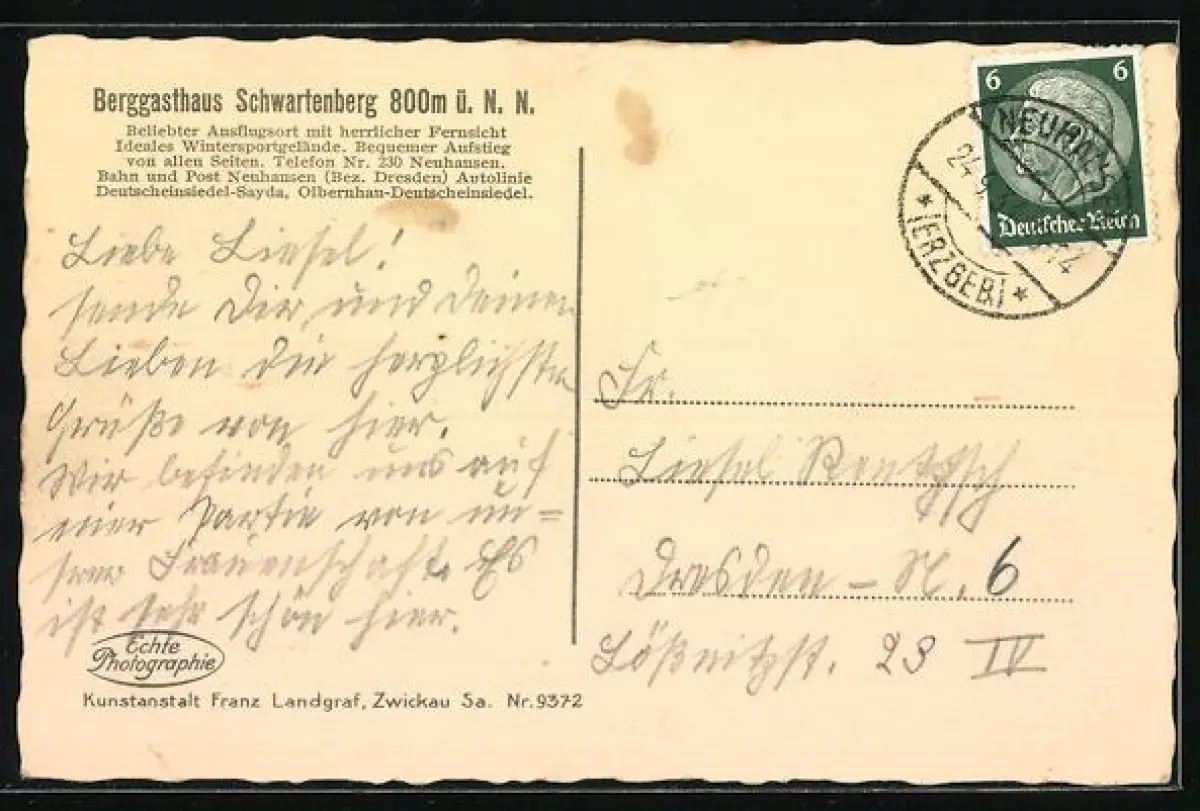 Berggasthaus Schwartenberg 800m ü. N. N.
Beliebter Ausflugsort mit herrlicher Fernsicht
Ideales Wintersportgelände. Bequemer Aufstieg
von allen Seiten. Telefon Nr. 230 Neuhausen.
Bahn und Post Neuhausen (Bez. Dresden) Autolinie
Deutscheinsiedel-Sayda, Olbernhau-Deutscheinsiedel.
Liebe Liesel!
sende Dir und Deinen
Lieben die herzlichsten
Grüße von hier.
Wir befinden uns auf
einer Partie von un=
srer Frauenschaft. Es
ist sehr schön hier.
Echte
Photographie
Kunstanstalt Franz Landgraf, Zwickau Sa. Nr. 9372
6 6
Deutsches Reich
24.9.
(ERZGEB.)
Fr.
Liesel Rentzsch
Dresden-N. 6
Lößnitzst. 23 IV